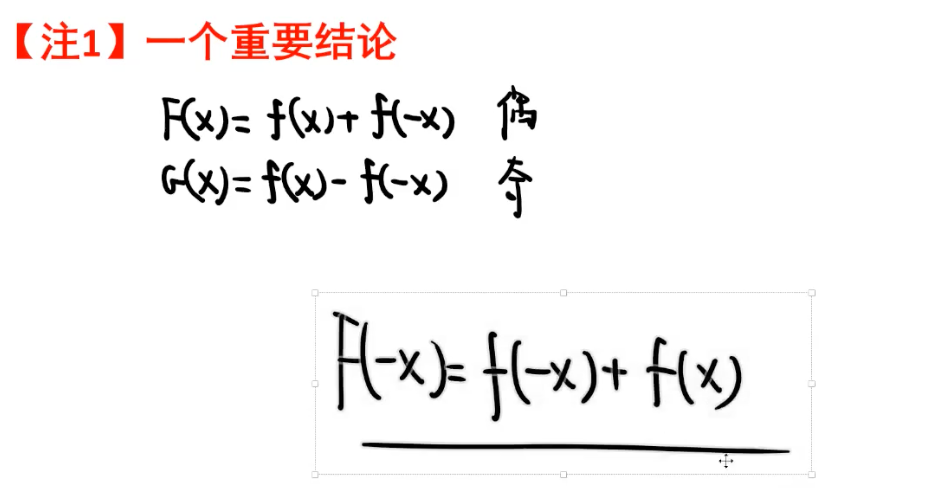 【注1】一个重要结论
F(x)= f(x)+ f(-x) 偶
G(x)= f(x)- f(-x) 奇
F(-x)= f(-x)+ f(x)